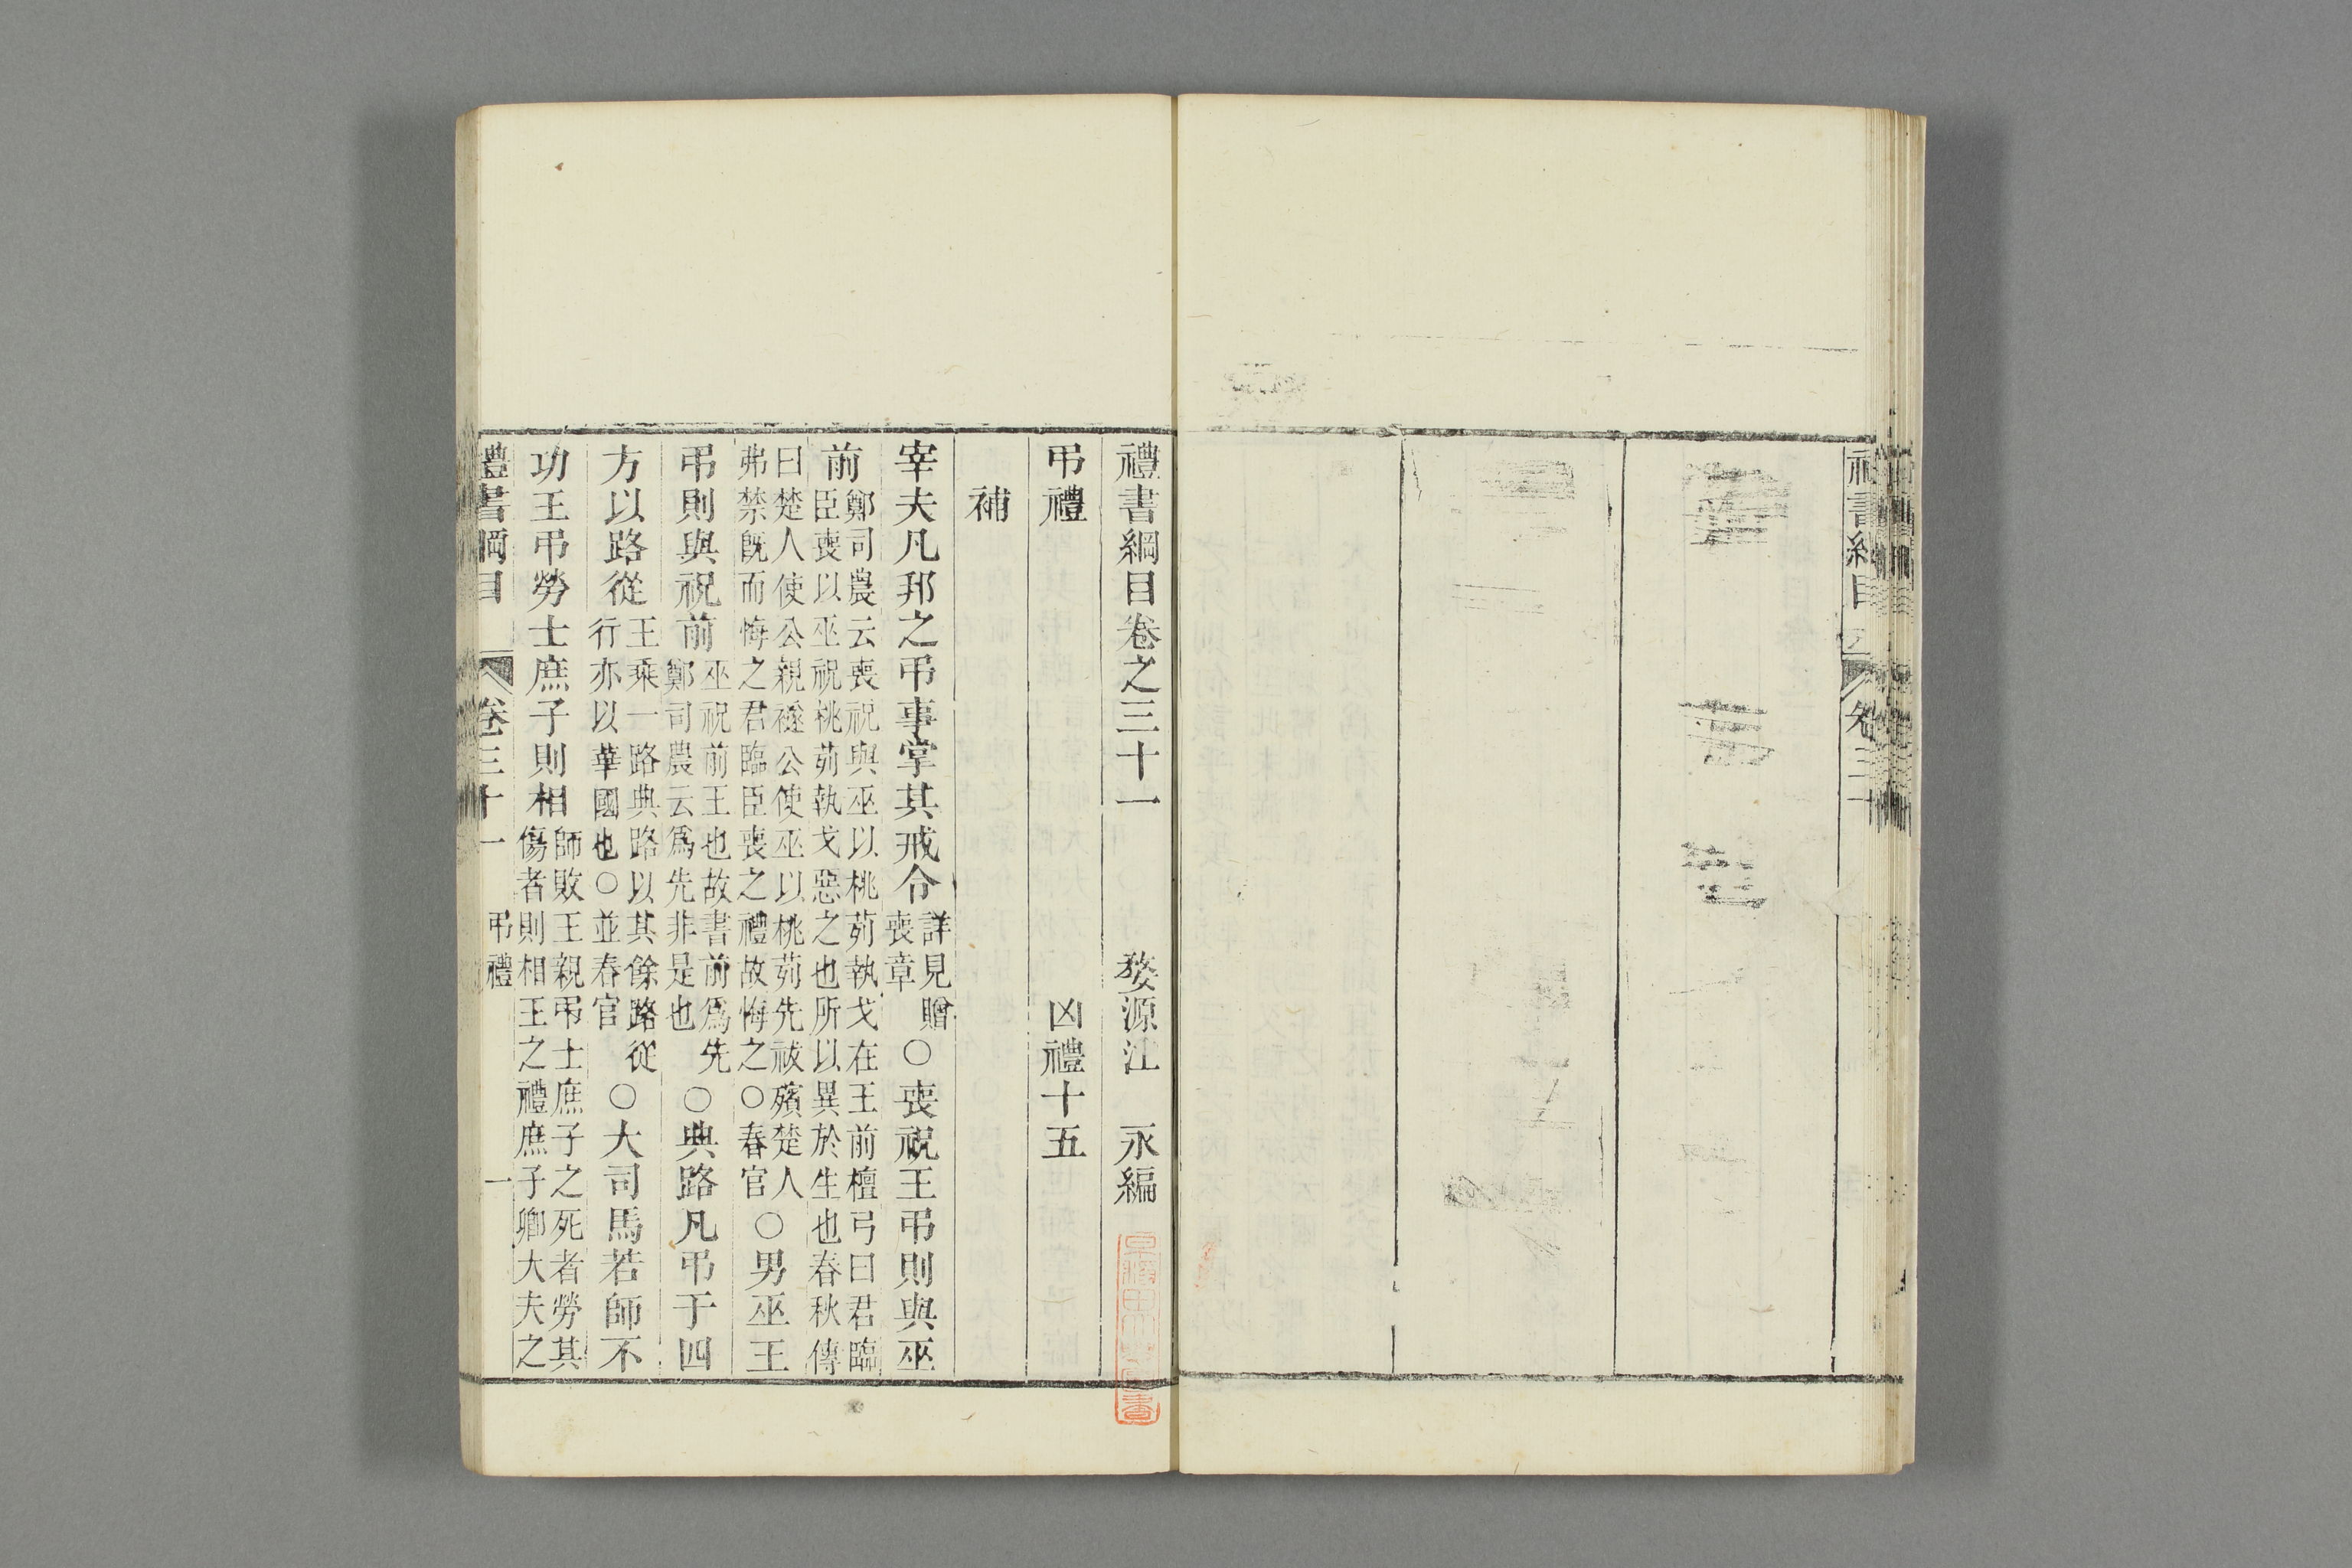 禮書綱目卷之三十一 婺源江 永編
弔禮 凶禮十五
補
宰夫凡邦之弔事掌其戒令詳見贈喪章○喪祝王弔則與巫
前鄭司農云喪祝與巫以桃茢執戈在王前檀弓曰君臨臣喪以巫祝桃茢執戈惡之也所以異於生也春秋傳
曰楚人使公親襚公使巫以桃茢先祓殯楚人弗禁既而悔之君臨臣喪之禮故悔之○春官○男巫王
弔則與祝前巫祝前王也故書前爲先鄭司農云爲先非是也○典路凡弔于四
方以路從王乘一路典路以其餘路從行亦以華國也○並春官○大司馬若師不
功王弔勞士庶子則相師敗王親弔士庶子之死者勞其傷者則相王之禮庶子卿大夫之
禮書綱目 卷三十一 弔禮 一